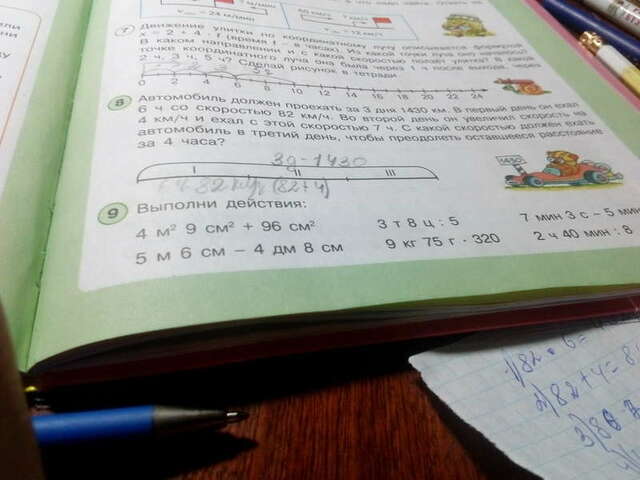 vпол = 24 м/мин
vпол = 12 км/ч
7 Движение улитки по координатному лучу описывается формулой
x = 2 + 4 · t (время t – в часах). Из какой точки луча она вышла?
В каком направлении и с какой скоростью ползёт улитка? В какой
точке координатного луча она была через 1 ч после выхода, через
2 ч, 3 ч, 5 ч? Сделай рисунок в тетради.
0 2 4 6 8 10 12 14 16 18 20 22 24
8 Автомобиль должен проехать за 3 дня 1430 км. В первый день он ехал
6 ч со скоростью 82 км/ч. Во второй день он увеличил скорость на
4 км/ч и ехал с этой скоростью 7 ч. С какой скоростью должен ехать
автомобиль в третий день, чтобы преодолеть оставшееся расстояние
за 4 часа?
3д - 1430
I II III
(82+4)
1430
9 Выполни действия:
4 м² 9 см² + 96 см² 3 т 8 ц : 5 7 мин 3 с – 5 мин
5 м 6 см – 4 дм 8 см 9 кг 75 г · 320 2 ч 40 мин : 8
1) 82 · 6 =
2) 82 + 4 = 8
3) 86